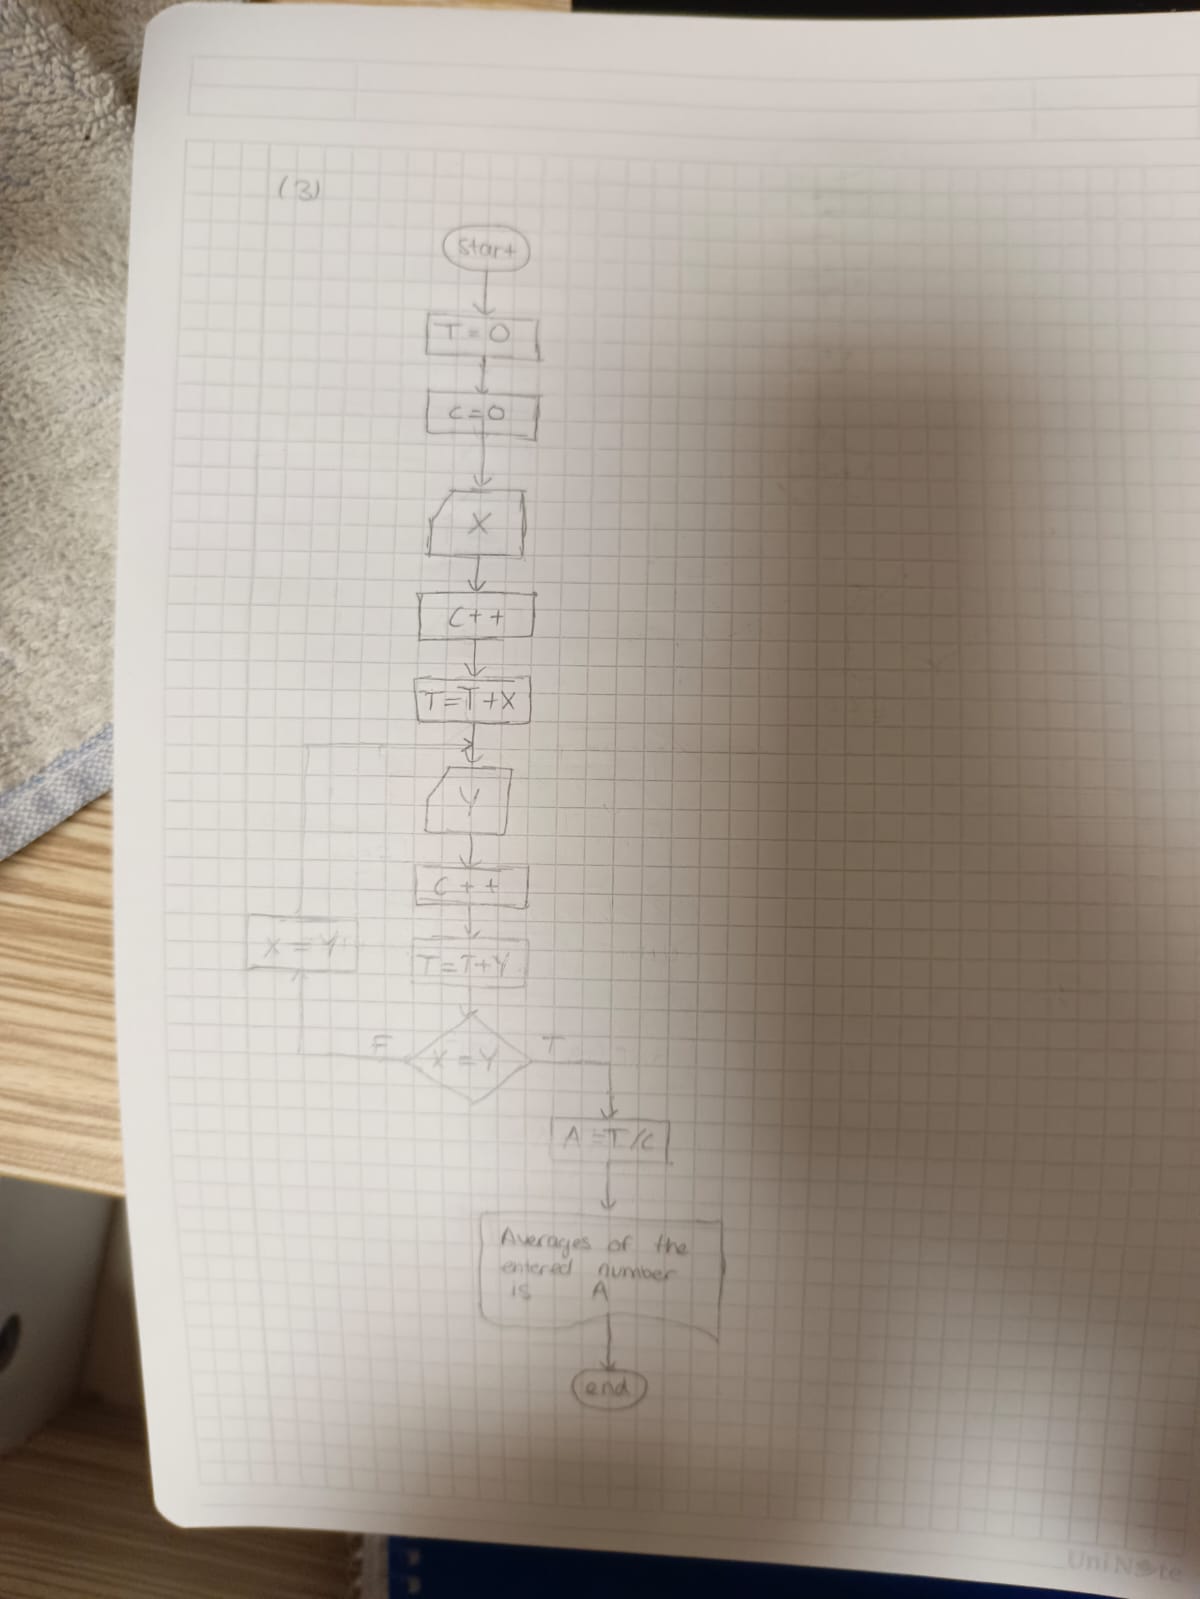 (3)
start
T = 0
C = 0
X
C++
T=T+X
Y
C++
X = Y
T=T+Y
F
X = Y
T
A = T/C
Averages of the
entered number
is A
end
UniNote